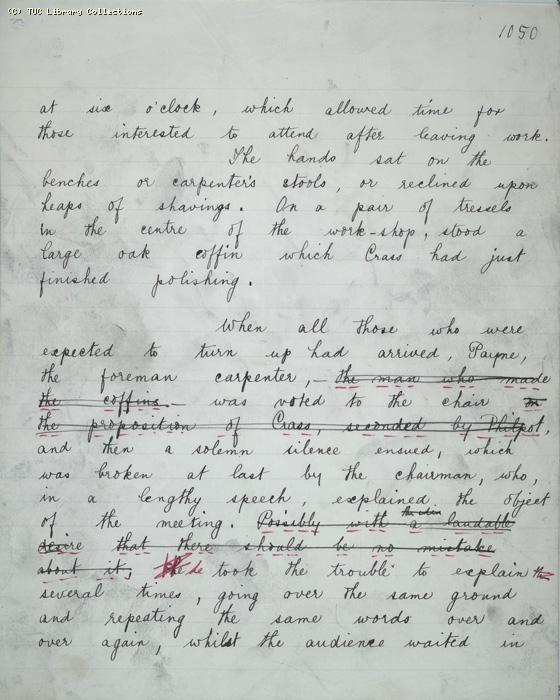 (C) TUC Library Collections
1050
at six o'clock, which allowed time for
those interested to attend after leaving work.
The hands sat on the
benches or carpenter's stools, or reclined upon
heaps of shavings. On a pair of tressels
in the centre of the work-shop, stood a
large oak coffin which Crass had just
finished polishing.
When all those who were
expected to turn up had arrived, Payne,
the foreman carpenter, – the man who made
the coffins – was voted to the chair on
the proposition of Crass, seconded by Philpot,
and then a solemn silence ensued, which
was broken at last by the chairman, who,
in a lengthy speech, explained the object
of the meeting. Possibly with a laudable
desire that there should be no mistake
about it, he took the trouble to explain
several times, going over the same ground
and repeating the same words over and
over again, whilst the audience waited in